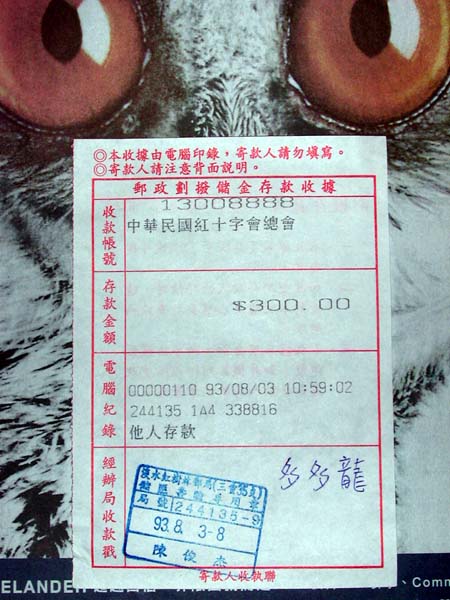 ◎本收據由電腦印錄，寄款人請勿填寫。
◎寄款人請注意背面說明。
郵政劃撥儲金存款收據
收款帳號
13008888
中華民國紅十字會總會
存款金額
$300.00
電腦紀錄
00000110 93/08/03 10:59:02
244135 1A4 338816
他人存款
經辦局收款戳
淡水紅樹林郵局(三重35支)
局號 244135-9
93.8.3-8
陳俊杰
多多龍
寄款人收執聯
ELANDER
Comm